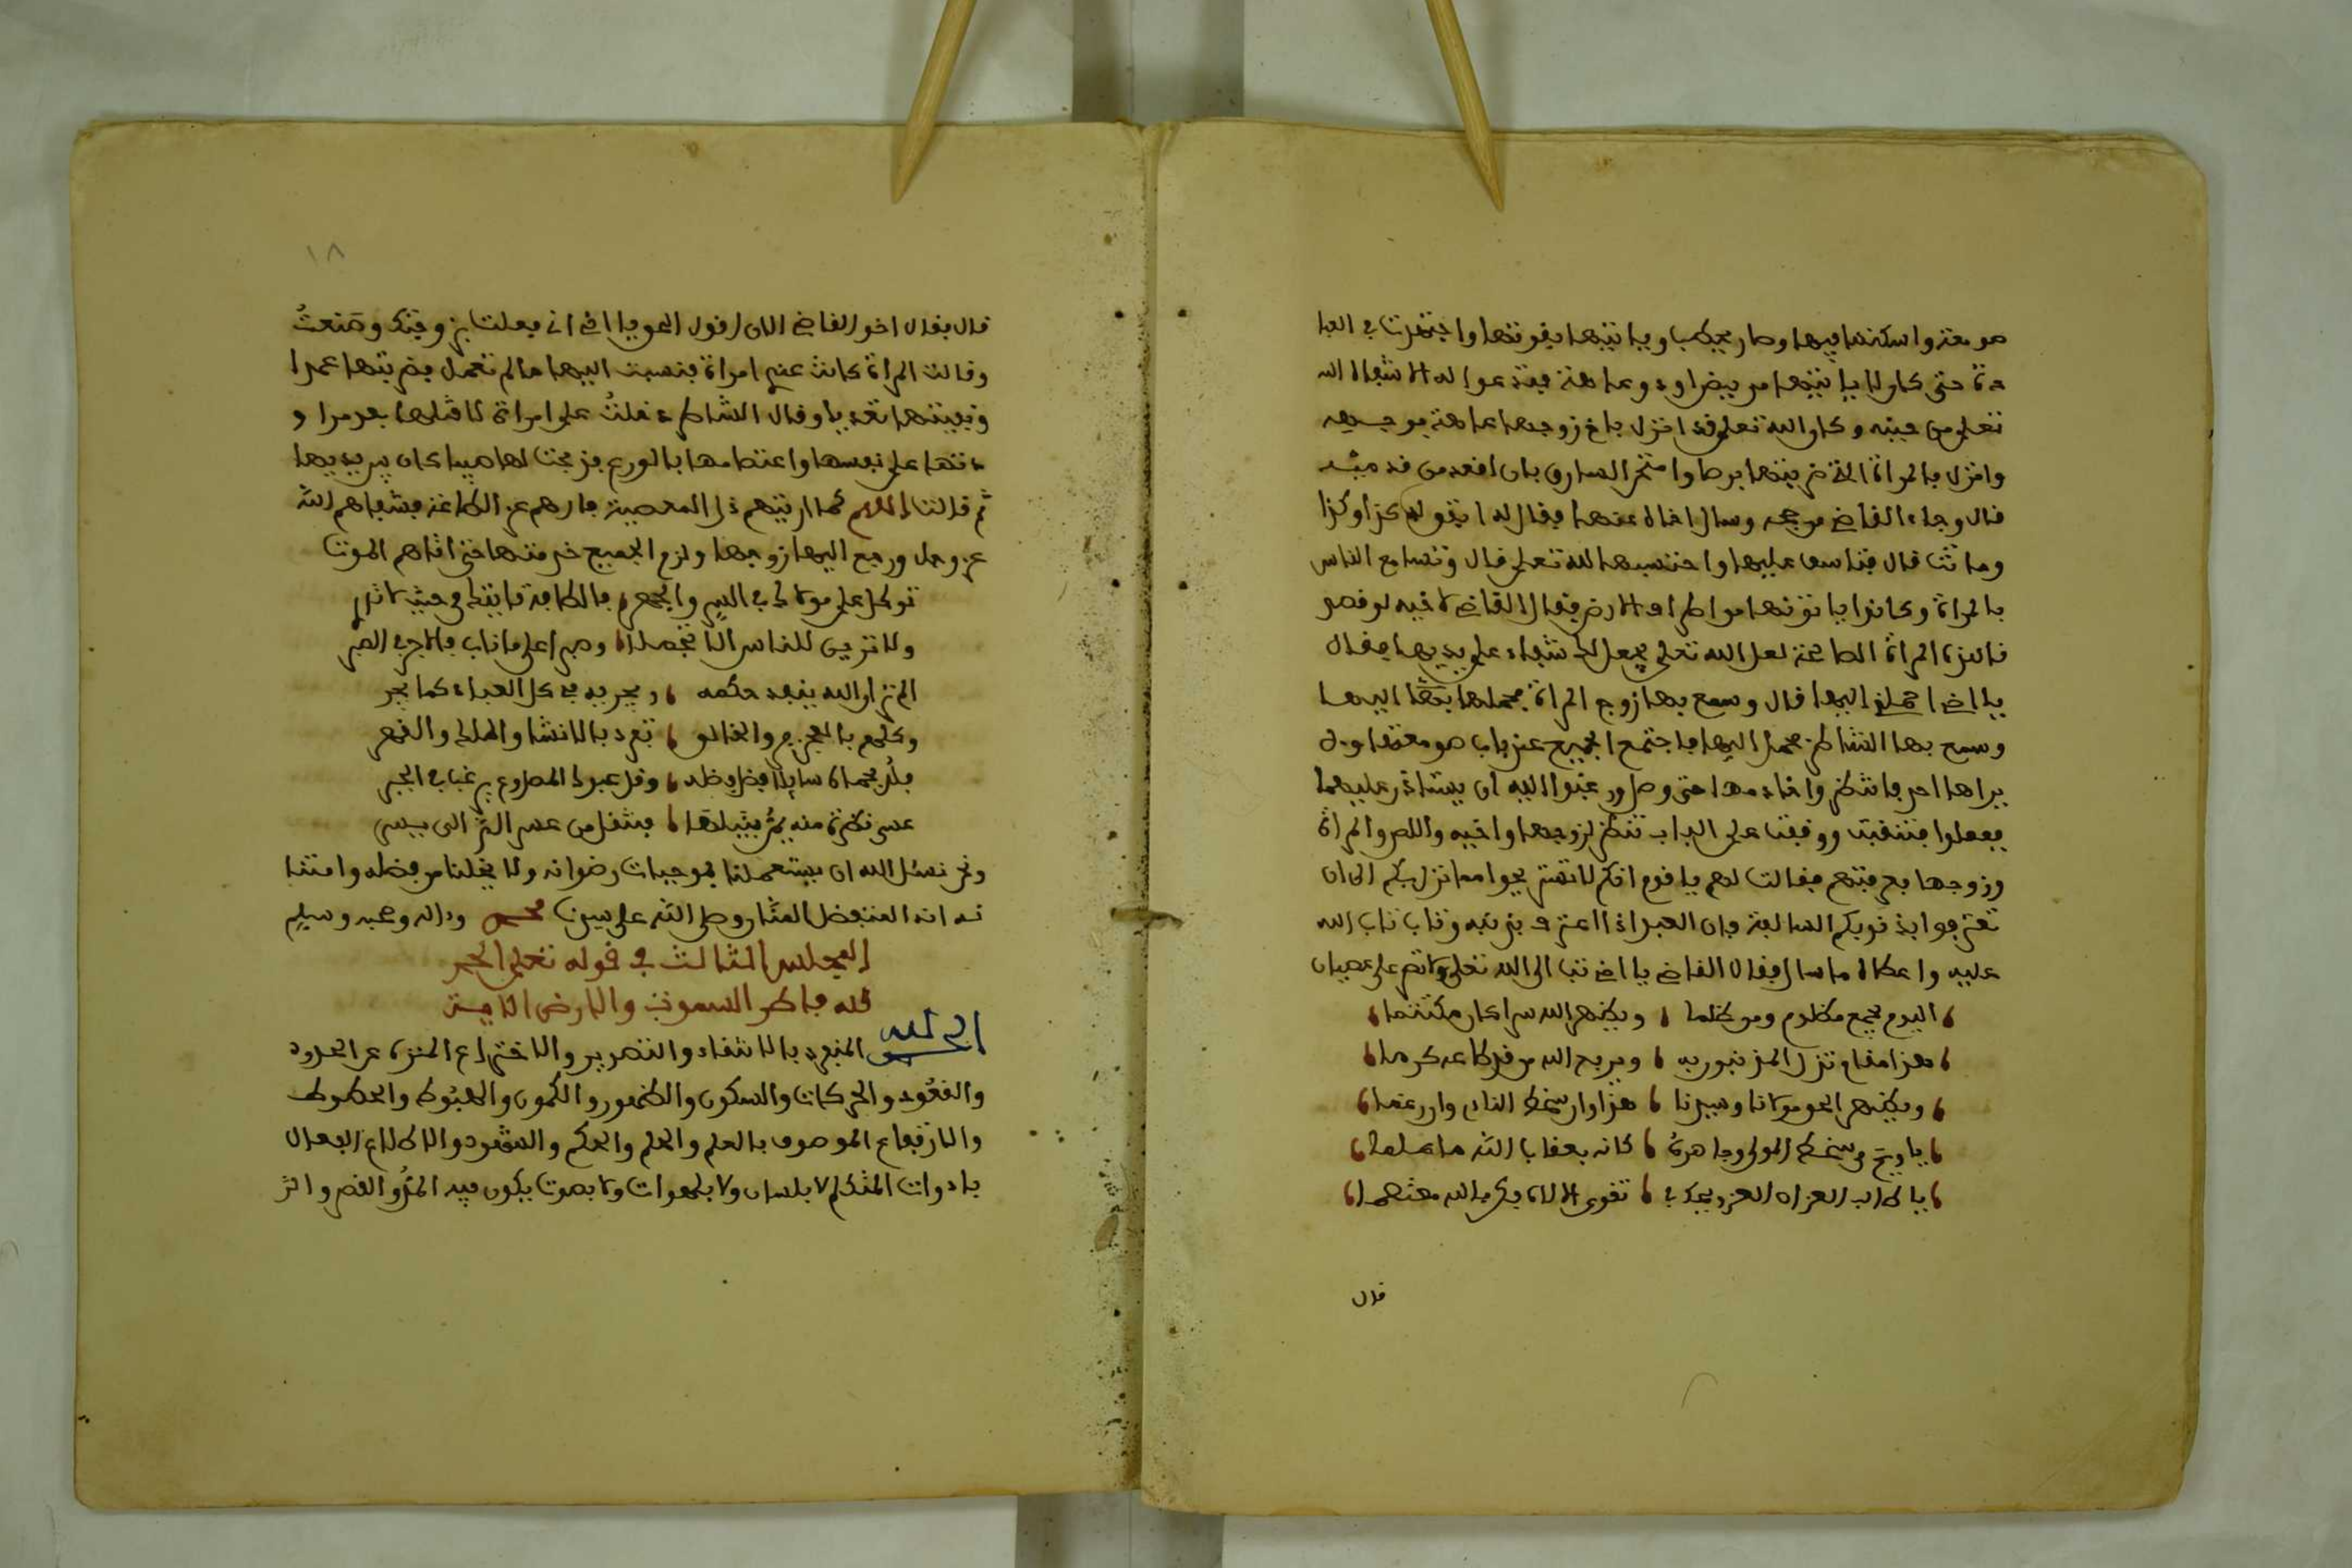 صومعته واسكنها فيها وصار يحطب وياتيها بقوتها واجتهدت في العبا
دة حتى كان لا ياتيها مريض او ذو عاهة فتدعوا له الا شفاه الله
تعلى من حينه وكان الله تعلى قد انزل باخ زوجها عاهة في جسده
وانزل بالمراة التي ضربتها برصا وامتحن السارق بان اقعد من قدميه
قال وجاء القاضي من حجه وسال اخاه عنها فقال له اتفق لها كذا وكذا
وماتت قال فتاسف عليها واحتسبها لله تعلى قال وتسامع الناس
بالمراة وكانوا ياتونها من اطراف الارض فقال القاضي لاخيه لو قصد
نا هذه المراة الصالحة لعل الله تعلى يجعل لك شفاء على يديها فقال
يا اخي احملني اليها قال وسمع بها زوج المراة فحملها ايضا اليها
وسمع بها الشاطر فحمل اليها فاجتمع الجميع عند باب صومعتها ولا
يراها احد فانتظروا خادمها حتى وصل ورغبوا اليه ان يستاذن عليهما
ففعلوا فتنقبت ووقفت على الباب تنظر لزوجها واخيه واللص والمراة
وزوجها فعرفتهم فقالت لهم يا قوم انكم لا تستريحوا مما نزل بكم الى ان
تعترفوا بذنوبكم السالفة فان العبد اذا اعترف بذنبه وتاب تاب الله
عليه واعطاه ما سال فقال القاضي يا اخي تب الى الله تعلى ولا تصر على عصيان
اليوم يجمع مظلوم ومن ظلما ويظهر الله سرا كان مكتتما
هذا مقام تذل المذنبون به ويربح الله من في طاعة كرما
ويظهر الحق مولانا وسيدنا هذا وان سخط الناس وان رغما
يا ويح من سخط المولى وجاهره كانه بعقاب الله ما علما
يا طالب العز ان العز ويحك في تقوى الاله فكن بالله معتصما
قال
١٨
قال فقال اخو القاضي الان اقول الحق يا اخي اني فعلت بزوجتك وصنعت
وقالت المراة كانت عندي امراة فنسبت اليها ما لم تفعل وضربتها عمدا
ونفيتها تعديا وقال الشاطر دخلت على امراة لاقتلها بعد مرا و
دتها على نفسها واعتصامها بالورع فذبحت لها صبيا كان بيديها
ثم قالت اللهم كما اريتهم ذل المعصية فارهم عز الطاعة فشفاهم الله
عز وجل ورجع اليها زوجها ولزم الجميع خدمتها حتى اتاهم الموت
توكل على مولاك في السر والجهر
ولا تزين للناس الا تجملا وصبرا على ما ناب فالاجر في الصبر
الم تر ان الله ينفذ حكمه ويجريه في كل العباد كما يجر
وكلهم بالعجز والخالق تفرد بالانشا والملك والقهر
فلذ بحماه سايلا فضل فضله وقل عبدك المطروح يرغب في الجبر
عسى نظرة منه يمر بنيلها فينقل من عسر الى يسر
ونحن نسئل الله ان يستعملنا بموجبات رضوانه ولا يخلنا من فضله وامتنا
نه انه المتفضل المنان وصلى الله على سيدنا محمد وءاله وصحبه وسلم
المجلس الثالث في قوله تعلى الحمد
لله فاطر السموات والارض الاية
الحمد لله المنفرد بالانشاء والتصوير والاختراع المنزه عن الحدود
والقعود والحركات والسكون والظهور والكمون والهبوط والحطوط
والارتفاع الموصوف بالعلم والحلم والحكم والشهود والاطلاع الفعال
بادوات المتكلم لا بلسان ولا بلهوات ولا بصوت يكون فيه المد والقصر والتر